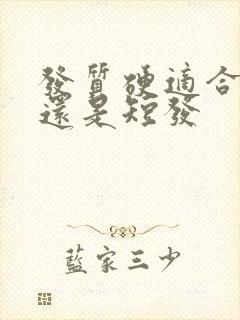 發質硬適合
還是短發
藍家三少